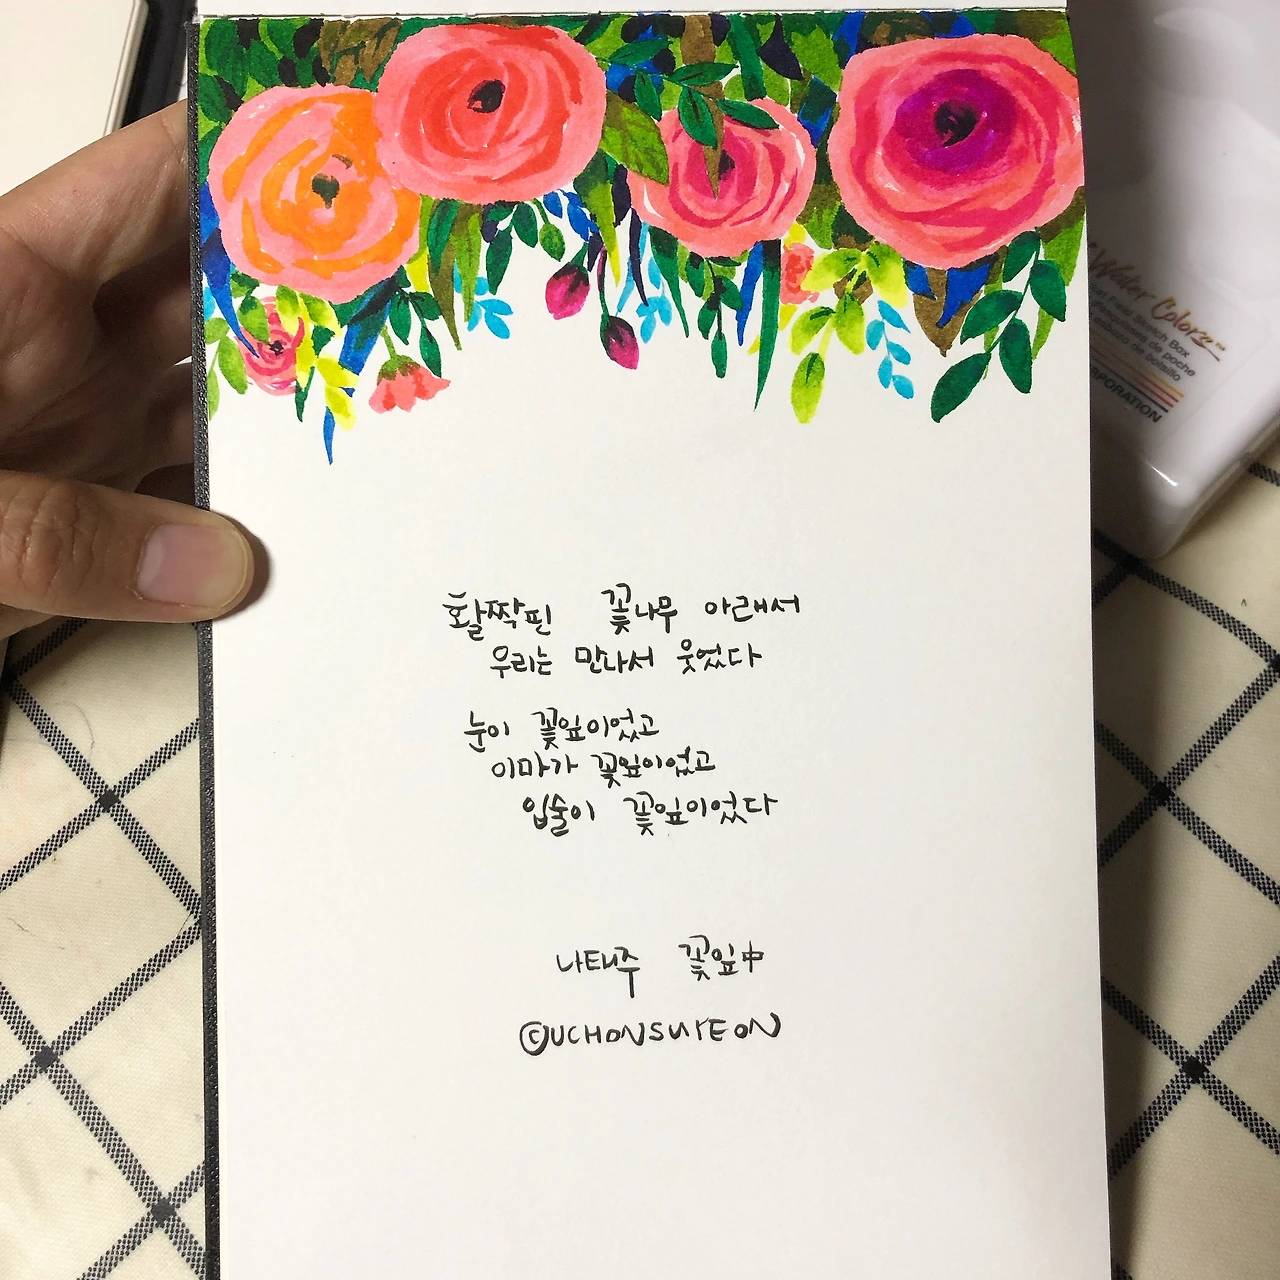 활짝핀 꽃나무 아래서
우리는 만나서 웃었다
눈이 꽃잎이었고
이마가 꽃잎이었고
입술이 꽃잎이었다
나태주 꽃잎中
©UCHONSUYEON
Water Colors™
Field Sketch Box
de poche
de bolsillo